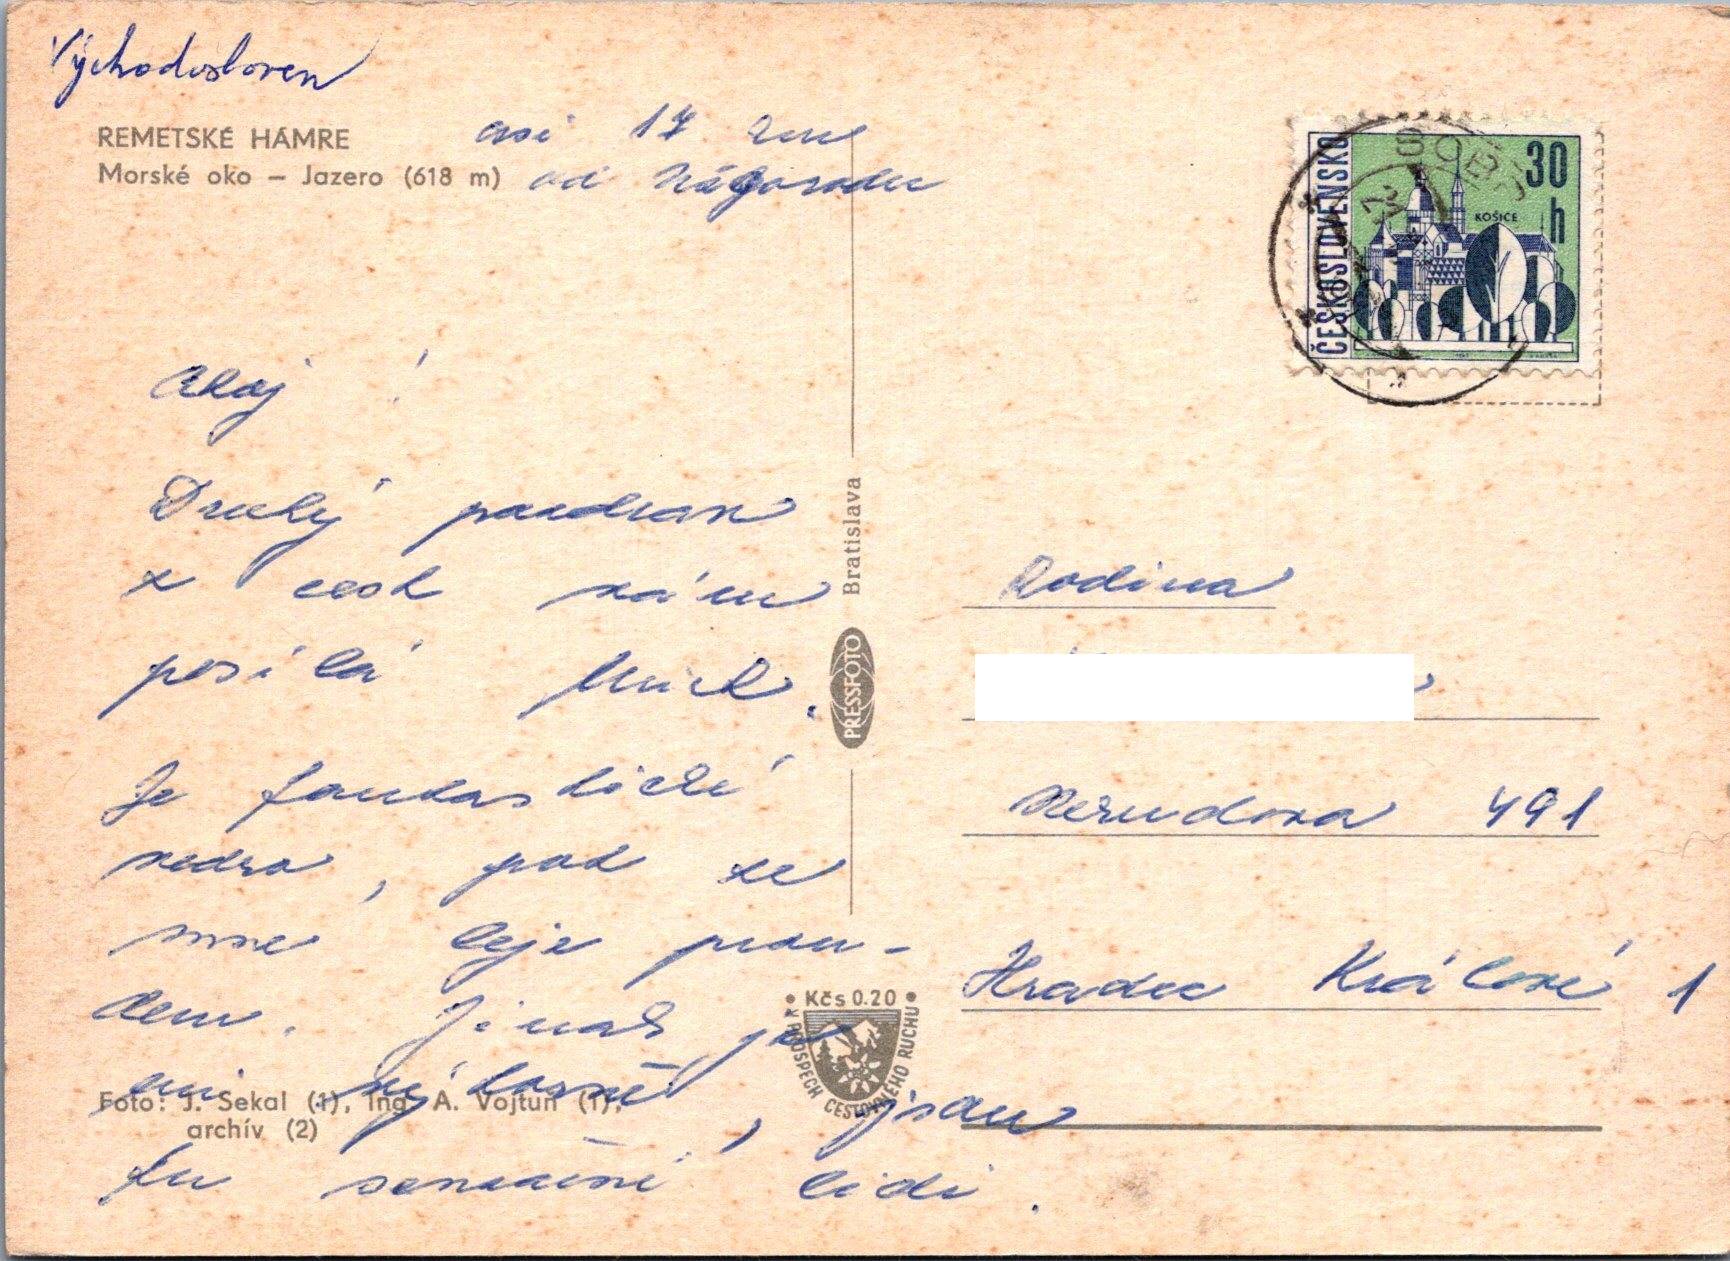 Východosloven
REMETSKÉ HÁMRE
Morské oko – Jazero (618 m)
asi 17 km
od
Ahoj!
Druhý pozdrav
z cest vám
posílá
Je fantastické
vedro, pot ze
mne leje prou-
dem. Jinak je
mi výborně, jsou
tu senzační lidi.
Foto: J. Sekal (1), Ing. A. Vojtun (1),
archív (2)
Bratislava
PRESSFOTO
• Kčs 0.20 •
V PROSPECH CESTOVNÉHO RUCHU
ČESKOSLOVENSKO
30 h
KOŠICE
Rodina
Nerudova 491
Hradec Králové 1